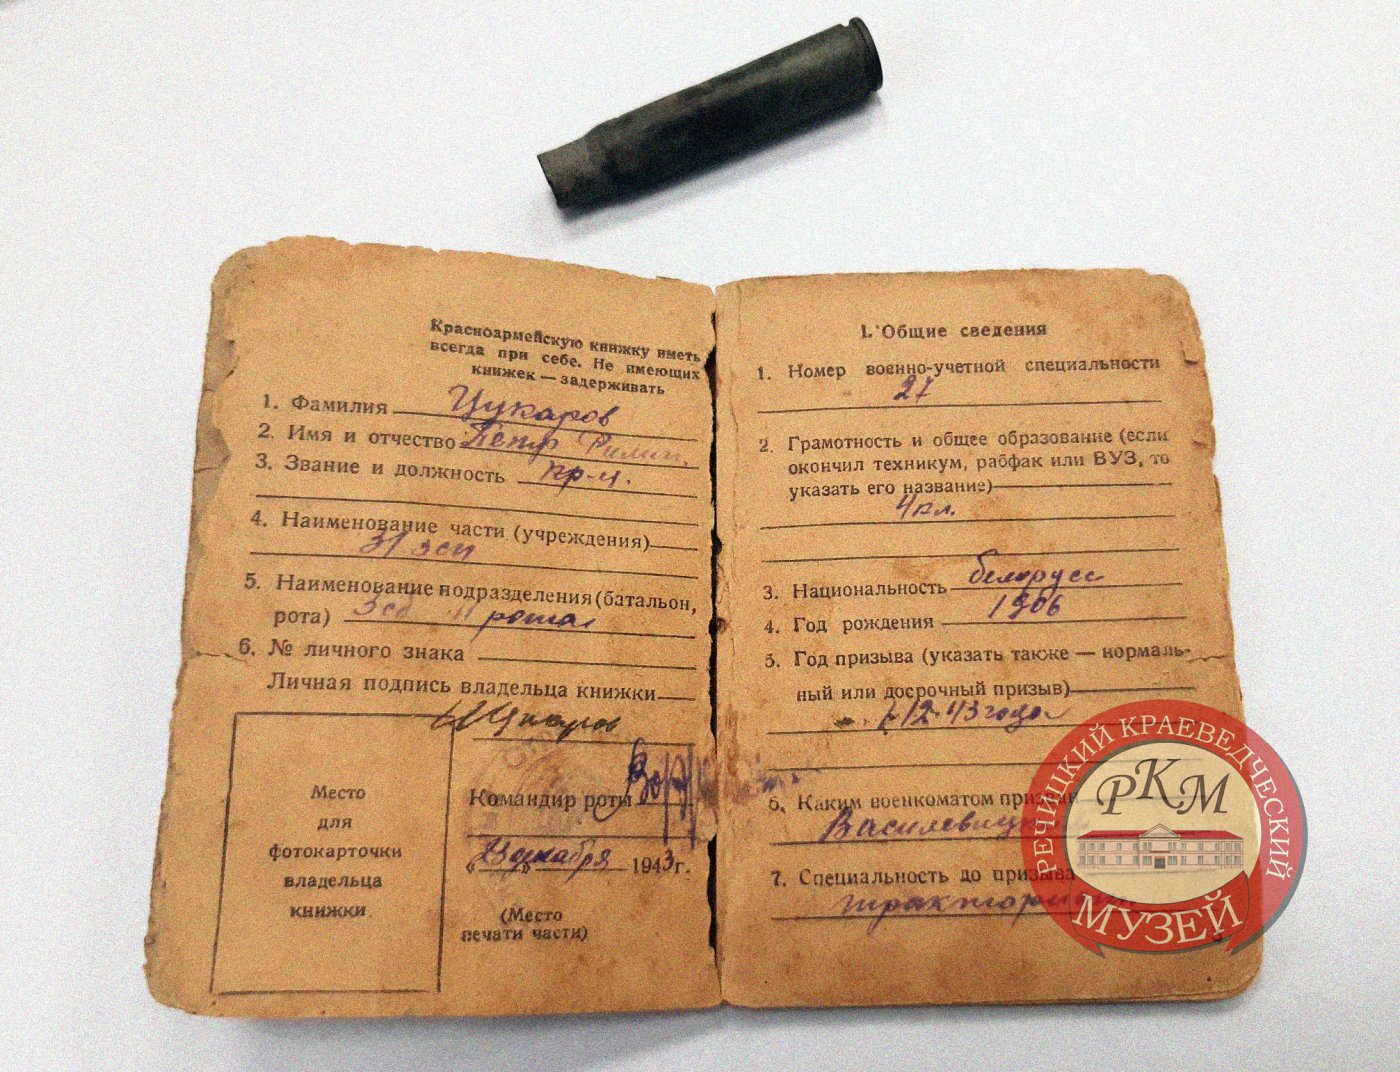 Красноармейскую книжку иметь
всегда при себе. Не имеющих
книжек — задерживать
1. Фамилия Цукаров
2. Имя и отчество Петр Филип.
3. Звание и должность кр-ц.
4. Наименование части (учреждения)
31 зсп
5. Наименование подразделения (батальон,
рота) 3сб рота
6. № личного знака
Личная подпись владельца книжки
Цукаров
Место
для
фотокарточки
владельца
книжки
Командир роты
«23» декабря 1943г.
(Место
печати части)
I. Общие сведения
1. Номер военно-учетной специальности
27
2. Грамотность и общее образование (если
окончил техникум, рабфак или ВУЗ, то
указать его название)
4кл.
3. Национальность белорусс
4. Год рождения 1906
5. Год призыва (указать также — нормаль-
ный или досрочный призыв)
12.43 года
6. Каким военкоматом призван
Василевицким
7. Специальность до призыва
тракторист
РЕЧИЦКИЙ КРАЕВЕДЧЕСКИЙ
РКМ
МУЗЕЙ